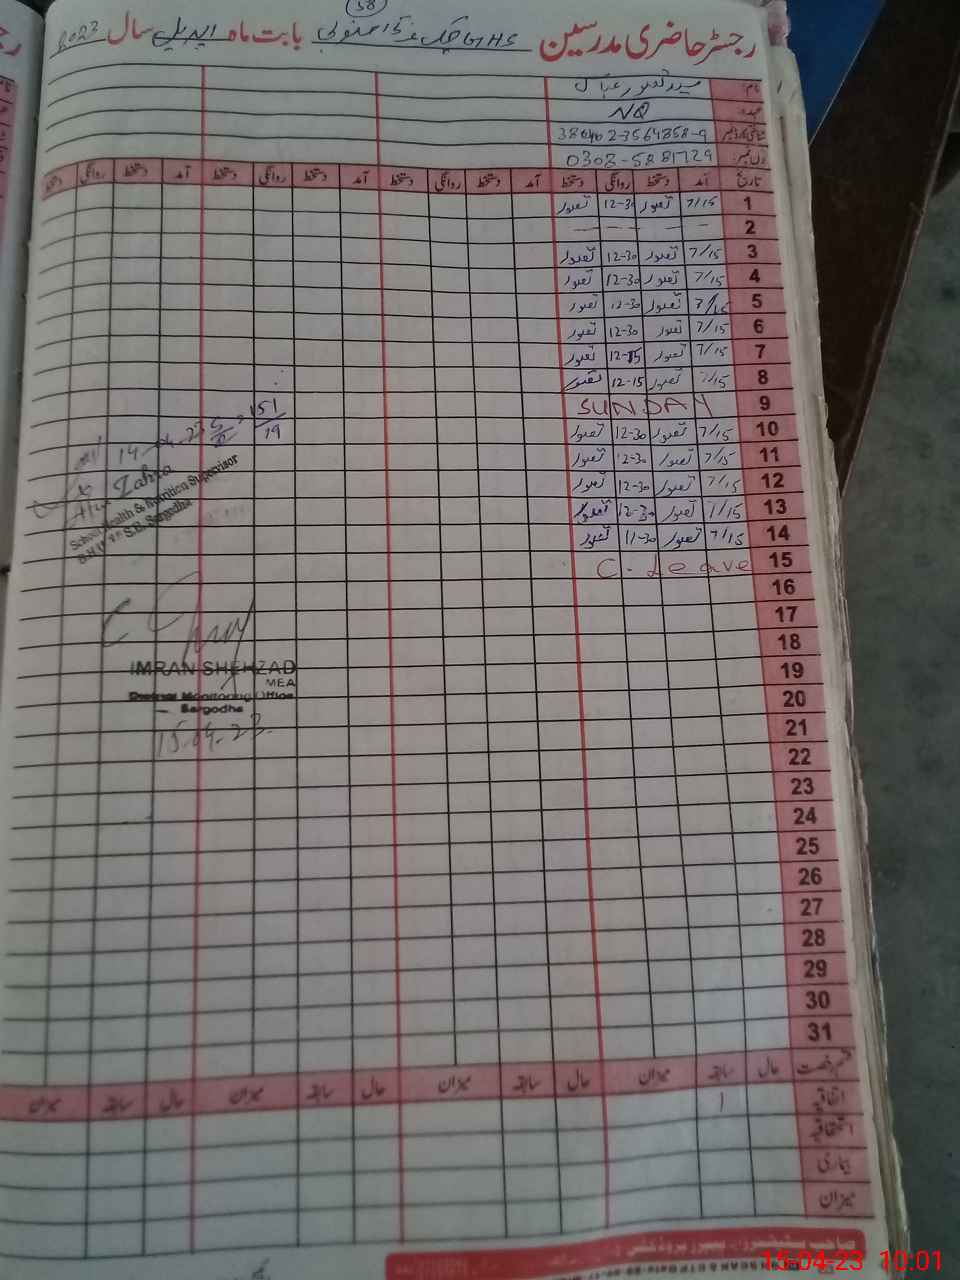 38
رجسٹر حاضری مدرسین GHS چک نمبر جنوبی بابت ماہ اپریل سال 2023
نام:
عہدہ: NQ
شناختی کارڈ نمبر 38402-3564858-9
فون نمبر: 0303-5881729
تاریخ آمد دستخط روانگی دستخط آمد دستخط روانگی دستخط آمد دستخط روانگی دستخط آمد دستخط روانگی دستخط
1 7/15 تصور 12-30 تصور
2 — — — —
3 7/15 تصور 12-30 تصور
4 7/15 تصور 12-30 تصور
5 7/15 تصور 12-30 تصور
6 7/15 تصور 12-30 تصور
7 7/15 تصور 12-15 تصور
8 7/15 تصور 12-15 تصور
9 SUNDAY
10 7/15 تصور 12-30 تصور
11 7/15 تصور 12-30 تصور
12 7/15 تصور 12-30 تصور
13 7/15 تصور 12-30 تصور
14 7/15 تصور 11-30 تصور
15 C. Leave
16
17
18
19
20
21
22
23
24
25
26
27
28
29
30
31
14-04-23 151/19
Zahra
School Health & Nutrition Supervisor
Sargodha
IMRAN SHEHZAD
MEA
District Monitoring Office
Sargodha
15.04.23
قسم رخصت حال سابقہ میزان حال سابقہ میزان حال سابقہ میزان حال سابقہ میزان
اتفاقیہ 1
استحقاقیہ
بیماری
میزان
15-04-23 10:01